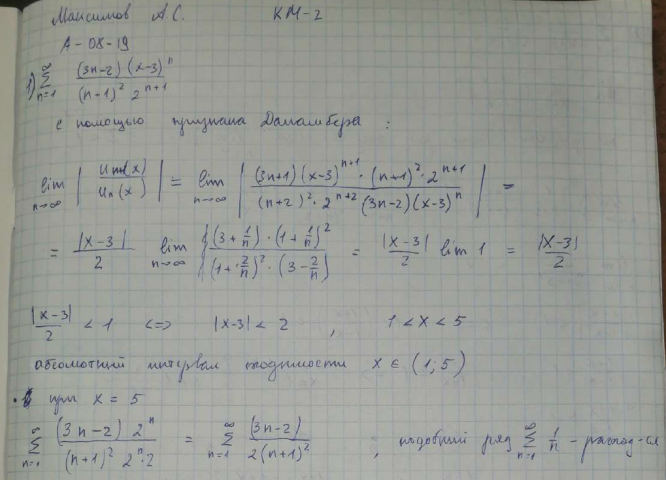 Максимов А С. КМ-2
А-08-19
1) ∑_{n=1}^{∞} (3n-2)(x-3)^n / (n+1)^2 2^{n+1}
с помощью признака Даламбера :
lim_{n→∞} | U_{n+1}(x) / U_n(x) | = lim_{n→∞} | (3n+1)(x-3)^{n+1} · (n+1)^2 · 2^{n+1} / (n+2)^2 · 2^{n+2} (3n-2)(x-3)^n | =
= |x-3| / 2 lim_{n→∞} { (3+1/n) · (1+1/n)^2 / (1+2/n)^2 · (3-2/n) } = |x-3| / 2 lim 1 = |x-3| / 2
|x-3| / 2 < 1 <=> |x-3| < 2 , 1 < x < 5
абсолютный интервал сходимости x ∈ (1;5)
• при x = 5
∑_{n=1}^{∞} (3n-2) 2^n / (n+1)^2 2^n·2 = ∑_{n=1}^{∞} (3n-2) / 2(n+1)^2 ; подобный ряд ∑_{n=1}^{∞} 1/n - расход-ся